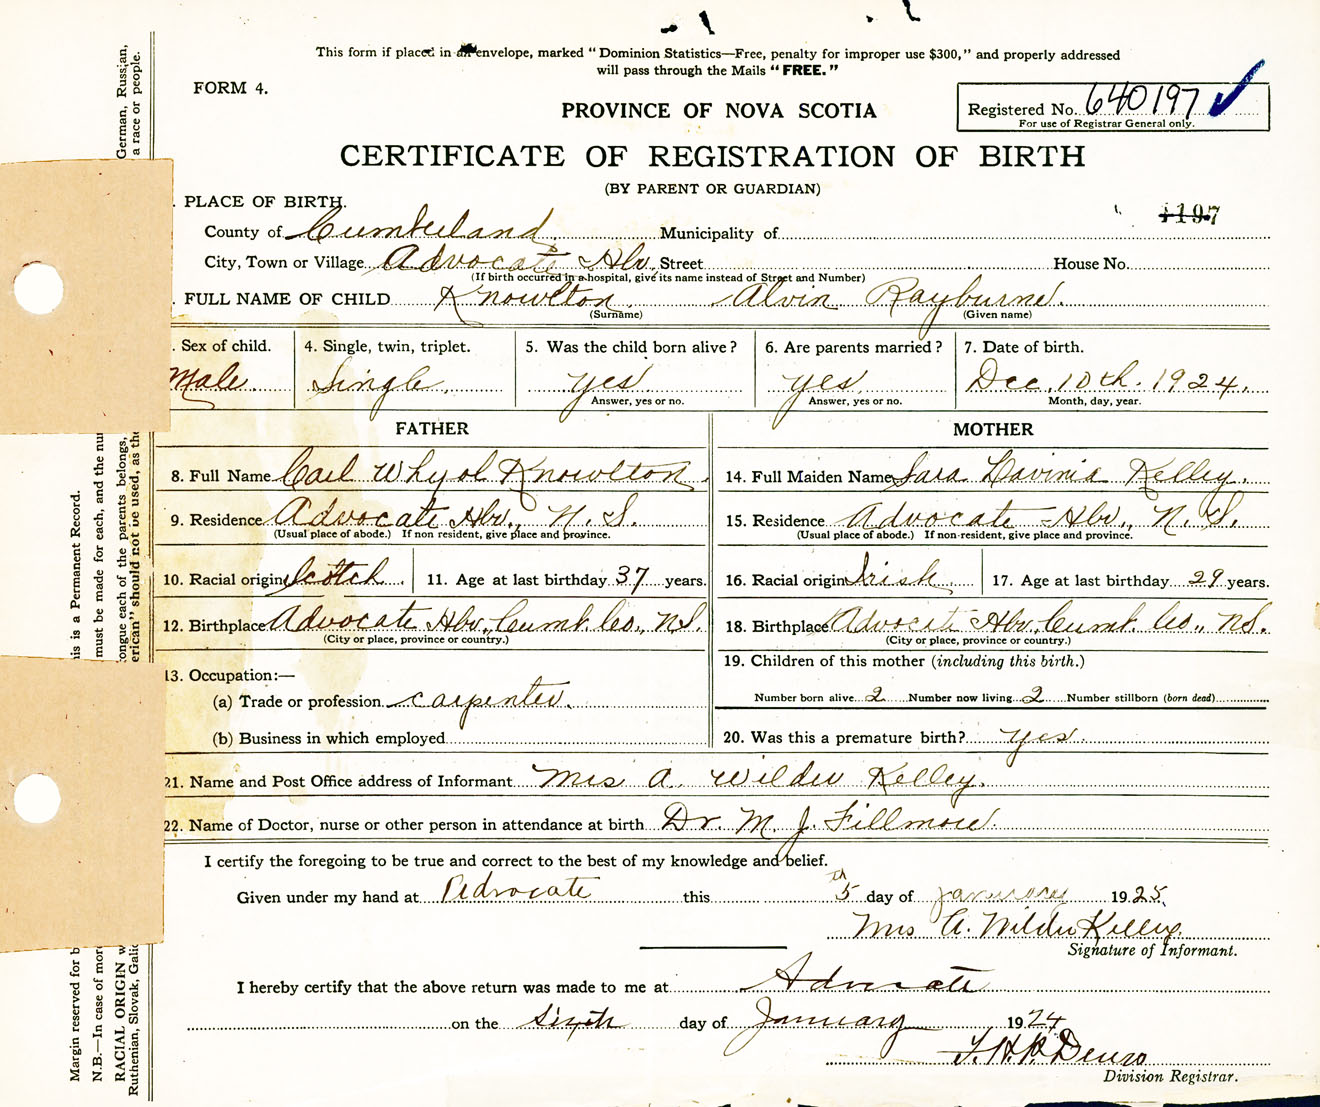 This form if placed in an envelope, marked "Dominion Statistics—Free, penalty for improper use $300," and properly addressed
will pass through the Mails "FREE."
FORM 4.
PROVINCE OF NOVA SCOTIA
Registered No. 640197
For use of Registrar General only.
CERTIFICATE OF REGISTRATION OF BIRTH
(BY PARENT OR GUARDIAN)
4197
. PLACE OF BIRTH.
County of Cumberland Municipality of
City, Town or Village Advocate Hbr. Street House No.
(If birth occurred in a hospital, give its name instead of Street and Number)
. FULL NAME OF CHILD Knowlton Alvin Rayburne.
(Surname) (Given name)
. Sex of child. 4. Single, twin, triplet. 5. Was the child born alive? 6. Are parents married? 7. Date of birth.
Male. Single yes yes Dec. 10th. 1924.
Answer, yes or no. Answer, yes or no. Month, day, year.
FATHER MOTHER
8. Full Name Carl Knowlton 14. Full Maiden Name Sara Lavinia Kelley.
9. Residence Advocate Hbr., N.S. 15. Residence Advocate Hbr., N.S.
(Usual place of abode.) If non resident, give place and province. (Usual place of abode.) If non-resident, give place and province.
10. Racial origin Scotch. 11. Age at last birthday 37 years. 16. Racial origin Irish 17. Age at last birthday 29 years.
12. Birthplace Advocate Hbr., Cumb. Co., N.S. 18. Birthplace Advocate Hbr., Cumb. Co., N.S.
(City or place, province or country.) (City or place, province or country.)
13. Occupation:— 19. Children of this mother (including this birth.)
(a) Trade or profession carpenter. Number born alive 2 Number now living 2 Number stillborn (born dead)
(b) Business in which employed 20. Was this a premature birth? yes.
21. Name and Post Office address of Informant Mrs A. Wilder Kelley.
22. Name of Doctor, nurse or other person in attendance at birth Dr. M. J. Fillmore.
I certify the foregoing to be true and correct to the best of my knowledge and belief.
Given under my hand at Advocate this 5th day of January 1925.
Mrs A. Wilder Kelley.
Signature of Informant.
I hereby certify that the above return was made to me at Advocate
on the sixth day of January 1924
Division Registrar.
Margin reserved for b
his is a Permanent Record.
N.B.—In case of more
must be made for each, and the nu
RACIAL ORIGIN w
tongue each of the parents belongs,
German, Russian,
Ruthenian, Slovak, Galic
erican" should not be used, as the
a race or people.